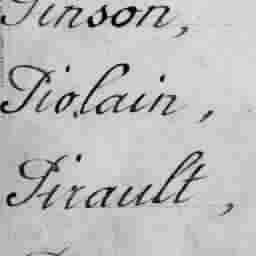 Pinson,
Piolain,
Pirault,